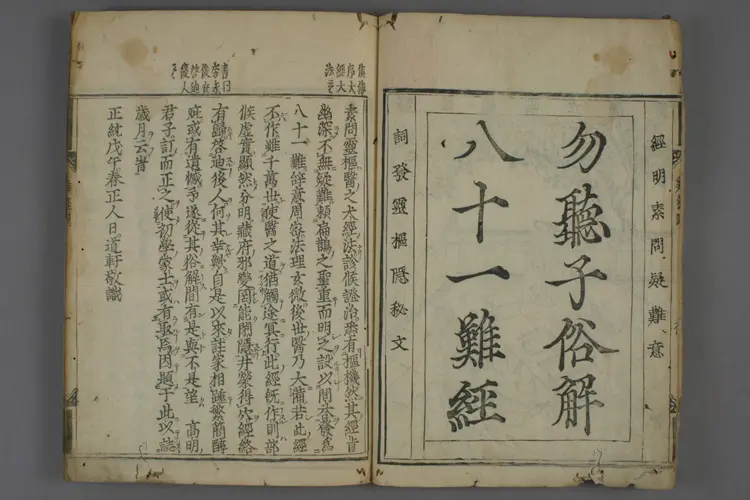 經明素問疑難意
勿聽子俗解
八十一難經
詞發靈樞隱秘文
素問靈樞醫之大經法診候證治悉有樞機然其經旨
幽深不無疑難賴扁鵲之聖重而明之設以問荅發爲
八十一難辭意周密法理玄微後世醫乃大備若此經
不作難千萬世使醫之道猶觸途冥行此經旣作則部
候虛實顯然分明藏府邪變罔能閉隱井滎得穴經絡
有歸啓迪後人何其幸歟自是以來註家相踵繁簡醇
疵或有遺憾予遂從其俗解間有是與不是望 高明
君子訂而正之使初學蒙士或有取焉因題于此以誌
歲月云旹
正統戊午春正人日道軒敬識